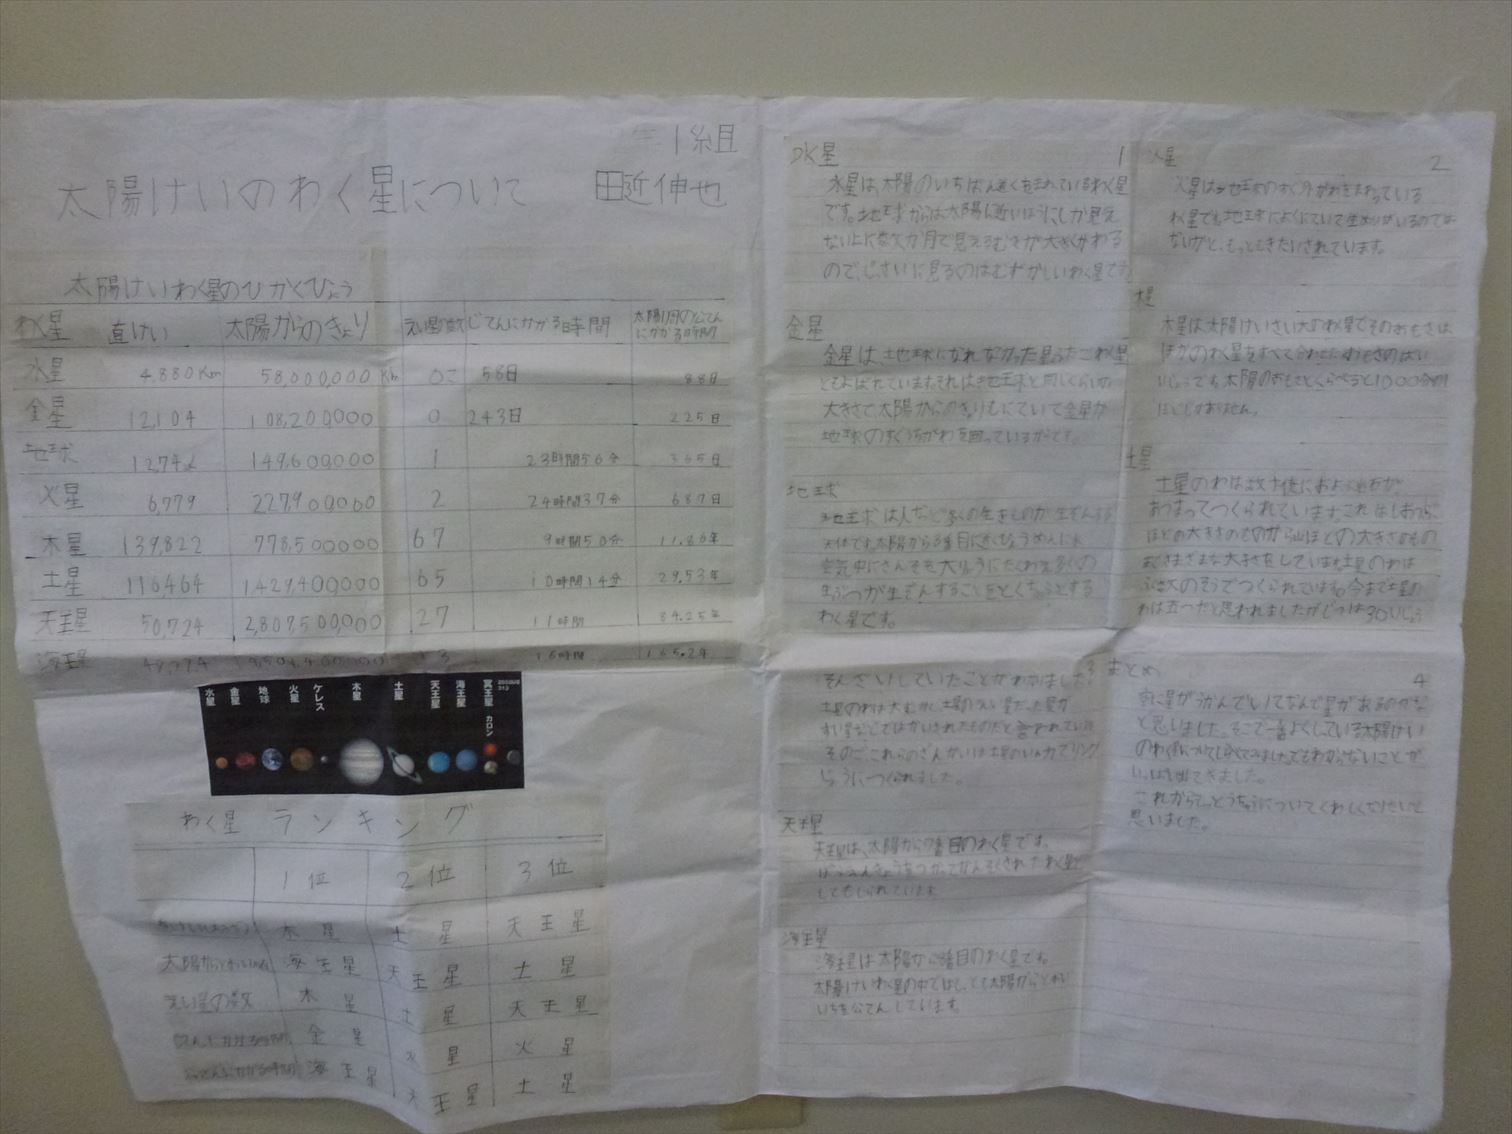 年1組
太陽けいのわく星について 田近伸也
太陽けいわく星のひかくひょう
わく星 直けい 太陽からのきょり えい星の数 じてんにかかる時間 太陽のまわりの公てんにかかる時間
水星 4,880Km 58,000,000Km 0こ 58日 88日
金星 12,104 108,200,000 0 243日 225日
地球 12,742 149,600,000 1 23時間56分 365日
火星 6,779 227,900,000 2 24時間37分 687日
木星 139,822 778,500,000 67 9時間50分 11.86年
土星 116,464 1,429,400,000 65 10時間14分 29.53年
天王星 50,724 2,807,500,000 27 11時間 84.25年
海王星 16時間 165.2年
水星 金星 地球 火星 ケレス 木星 土星 天王星 海王星 冥王星 カロン 2003UB 313
わく星ランキング
1位 2位 3位
木星 土星 天王星
太陽からとおい 海王星 天王星 土星
えい星の数 木星 土星 天王星
じてんにかかる時間 金星 火星
こうてんにかかる時間 海王星 天王星 土星
水星 1
水星は、太陽のいちばん近くをまわっているわく星
です。地球からは太陽に近いほうにしか見え
ない上に数か月で見えるむきが大きくかわる
ので、じっさいに見るのはむずかしいわく星です
金星
金星は、地球になれなかったふたごわく星
ともよばれています。それは地球と同じくらいの
大きさで、太陽からのきょりもにていて金星が
地球のすぐうちがわを回っているからです。
地球
地球は人など多くの生きものが生ぞんする
天体です。太陽から3番目に近くひょうめんに水
空気中にさんそを大りょうにたくわえ多くの
生ぶつが生ぞんすることをとくちょうとする
わく星です。
火星 2
火星は地球のすぐ外がわをまわっている
わく星です。地球によくにていて生めいがいるのでは
ないかと、もっともきたいされています。
木星
木星は太陽けいさい大のわく星でそのおもさは
ほかのわく星をすべて合わせたおもさの2ばい
いじょうです。太陽のおもさとくらべると1000分の1
ほどしかありません。
土星
土星のわは数十億におよぶ石が
あつまってつくられています。これは
ほどの大きさのものから山ほどの大きさのもの
までさまざまな大きさをしています。土星のわは
でつくられています。今まで土星の
わは五つだと思われましたがじつは30いじょう
そんざいしていたことがわかりました 3
土星のわは大むかし土星のえい星だった星が
すい星などではかいされたものだと言われています
そのご、これらのざんがいは土星のいん力でリング
じょうにつくられました。
天王星
天王星は、太陽から7番目のわく星です。
ぼうえんきょうをつかってはっけんされたわく星と
してもしられています
海王星
海王星は太陽から8番目のわく星です。
太陽けいわく星の中ではもっとも太陽からとおい
いちを公てんしています。
まとめ 4
空に星がうかんでいてなんで星があるのかな
と思いました。そこで一番よくしっている太陽けい
のわく星についてしらべてみました。でもわからないことが
いっぱい出てきました。
これからもっとうちゅうについてくわしくなりたいと
思いました。